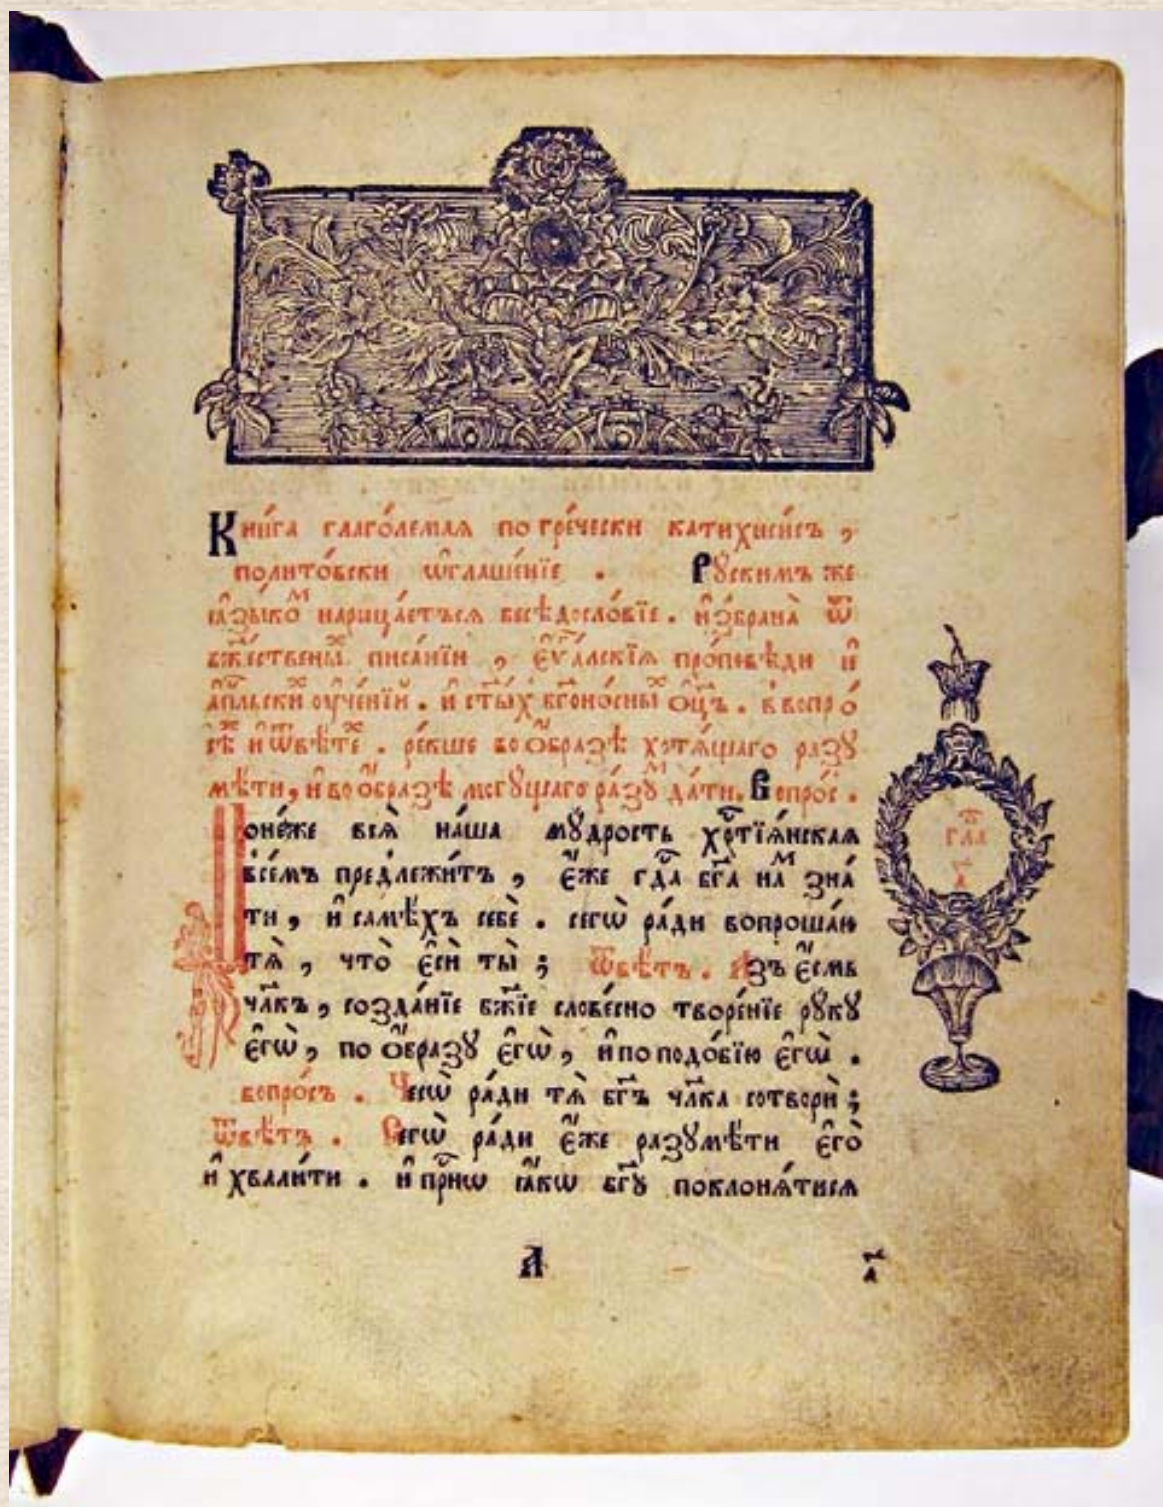 Кни́га глаго́лемая по гре́чески катихи́сисъ ,
полито́вски ѡ҆глаше́нїе . Рꙋ́скимъ же
ꙗ҆зы́коⷨ нарица́етъсѧ бесѣдосло́вїе . и҆збрана̀ ѿ
бж҃ественыⷯ писа́нїи , є҆ѵⷢ҇а́лскїѧ про́повѣди и҆
а҆пⷭ҇льскиⷯ ᲂу҆че́нїй . и҆ ст҃ы́хъ бг҃оно́сныⷯ ѻ҆ц҃ъ . в вопро́
сѣⷯ и҆ ѿвѣ́теⷯ . ре́кше во ѻ҆́бразѣ хотѧ́щаго разꙋ
мѣ́ти , и҆ во ѻ҆́бразѣ могꙋ́щаго ра́зꙋⷨ да́ти . Вопро́с .
Поне́же всѧ̀ на́ша мꙋ́дрость хрⷭ҇тїѧ́нскаѧ
всѣ́мъ предлежи́тъ , є҆́же гдⷭ҇а бг҃а наⷨ зна́
ти , и҆ самѣ́хъ себѐ . сегѡ̀ ра́ди вопроша́ю
тѧ̀ , что̀ є҆сѝ ты̀ ; Ѿвѣ́тъ . А҆́зъ є҆́смь
чл҃къ , созда́нїе бж҃їе слове́сно творе́нїе рꙋкꙋ̀
є҆гѡ̀ , по ѻ҆́бразꙋ є҆гѡ̀ , и҆ по подо́бїю є҆гѡ̀ .
вопро́съ . Чесѡ̀ ра́ди тѧ̀ бг҃ъ чл҃ка сотворѝ ;
Ѿвѣ́тъ . Сегѡ̀ ра́ди є҆́же разꙋмѣ́ти є҆го̀
и҆ хвали́ти . и҆ при́нѡ ꙗ҆́кѡ бг҃ꙋ поклонѧ́тисѧ
гла
а҃
А
а҃